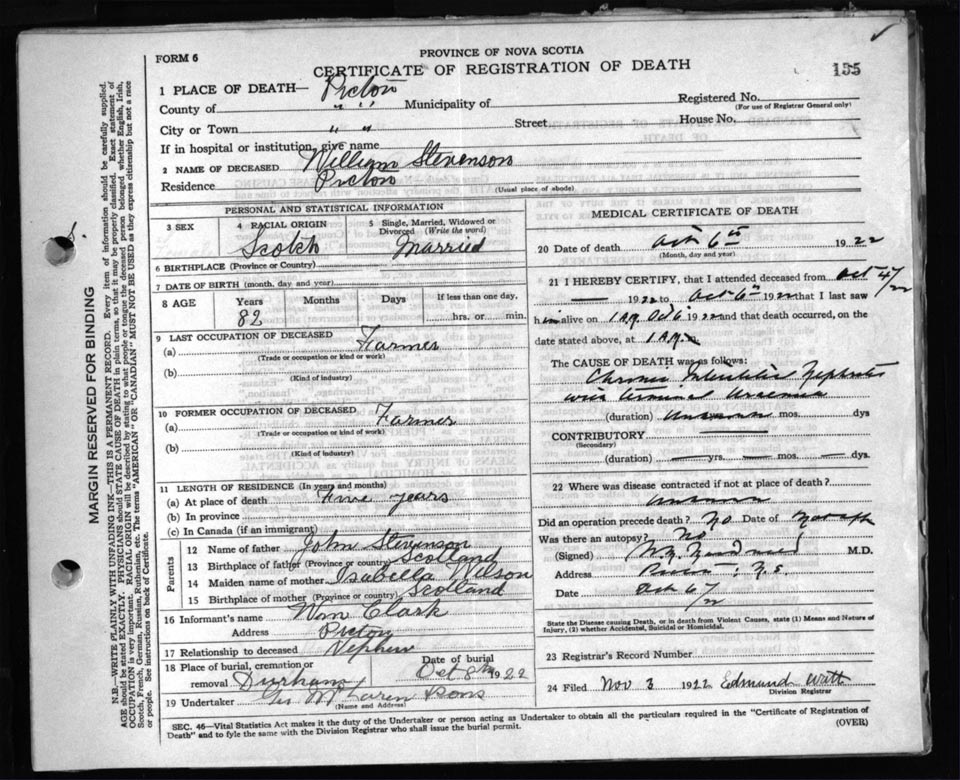 PROVINCE OF NOVA SCOTIA
FORM 6
CERTIFICATE OF REGISTRATION OF DEATH
155
1 PLACE OF DEATH— Pictou
County of " " Municipality of Registered No.
(For use of Registrar General only)
City or Town " " Street House No.
If in hospital or institution, give name
2 NAME OF DECEASED William Stevenson
Residence Pictou
(Usual place of abode)
PERSONAL AND STATISTICAL INFORMATION
3 SEX 4 RACIAL ORIGIN 5 Single, Married, Widowed or Divorced (Write the word)
Scotch Married
6 BIRTHPLACE (Province or Country)
7 DATE OF BIRTH (month, day and year)
8 AGE Years Months Days If less than one day,
82 hrs. or min.
9 LAST OCCUPATION OF DECEASED
(a) Farmer
(Trade or occupation or kind or work)
(b)
(Kind of industry)
10 FORMER OCCUPATION OF DECEASED
(a) Farmer
(Trade or occupation or kind of work)
(b)
(Kind of industry)
11 LENGTH OF RESIDENCE (In years and months)
(a) At place of death Five years
(b) In province
(c) In Canada (if an immigrant)
Parents
12 Name of father John Stevenson
13 Birthplace of father (Province or country) Scotland
14 Maiden name of mother Isabella Wilson
15 Birthplace of mother (Province or Country) Scotland
16 Informant's name Wm Clark
Address Pictou
17 Relationship to deceased Nephew
18 Place of burial, cremation or removal Durham Date of burial Oct 8th 1922
19 Undertaker McLaren Sons
(Name and Address)
MEDICAL CERTIFICATE OF DEATH
20 Date of death Oct 6th 1922
(Month, day and year)
21 I HEREBY CERTIFY, that I attended deceased from Oct 4/22
— 1922 to Oct 6th 1922 that I last saw
him alive on 1 A.M. Oct 6 1922 and that death occurred, on the
date stated above, at 1 A.M.
The CAUSE OF DEATH was as follows:
Chronic Interstitial Nephritis
with terminal Uraemia
(duration) unknown mos. dys
CONTRIBUTORY
(Secondary)
(duration) — yrs. — mos. — dys.
22 Where was disease contracted if not at place of death?
unknown
Did an operation precede death? No Date of
Was there an autopsy? No
(Signed) M.D.
Address Pictou, N.S.
Date Oct 6/22
State the Disease causing Death, or in death from Violent Causes, state (1) Means and Nature of
Injury, (2) whether Accidental, Suicidal or Homicidal.
23 Registrar's Record Number
24 Filed Nov 3 1922 Edmund Watt
Division Registrar
SEC. 46—Vital Statistics Act makes it the duty of the Undertaker or person acting as Undertaker to obtain all the particulars required in the "Certificate of Registration of
Death" and to fyle the same with the Division Registrar who shall issue the burial permit.
(OVER)
MARGIN RESERVED FOR BINDING
N.B.—WRITE PLAINLY WITH UNFADING INK—THIS IS A PERMANENT RECORD. Every item of information should be carefully supplied.
AGE should be stated EXACTLY. PHYSICIANS should STATE CAUSE OF DEATH in plain terms, so that it may be properly classified. Exact statement of
OCCUPATION is very important. RACIAL ORIGIN will be described by stating to what people or tongue the deceased person belonged whether English, Irish,
Scotch, French, German, Russian, Ruthenian, etc. The terms "AMERICAN" OR "CANADIAN" MUST NOT BE USED as they express citizenship but not a race
or people. See instructions on back of Certificate.